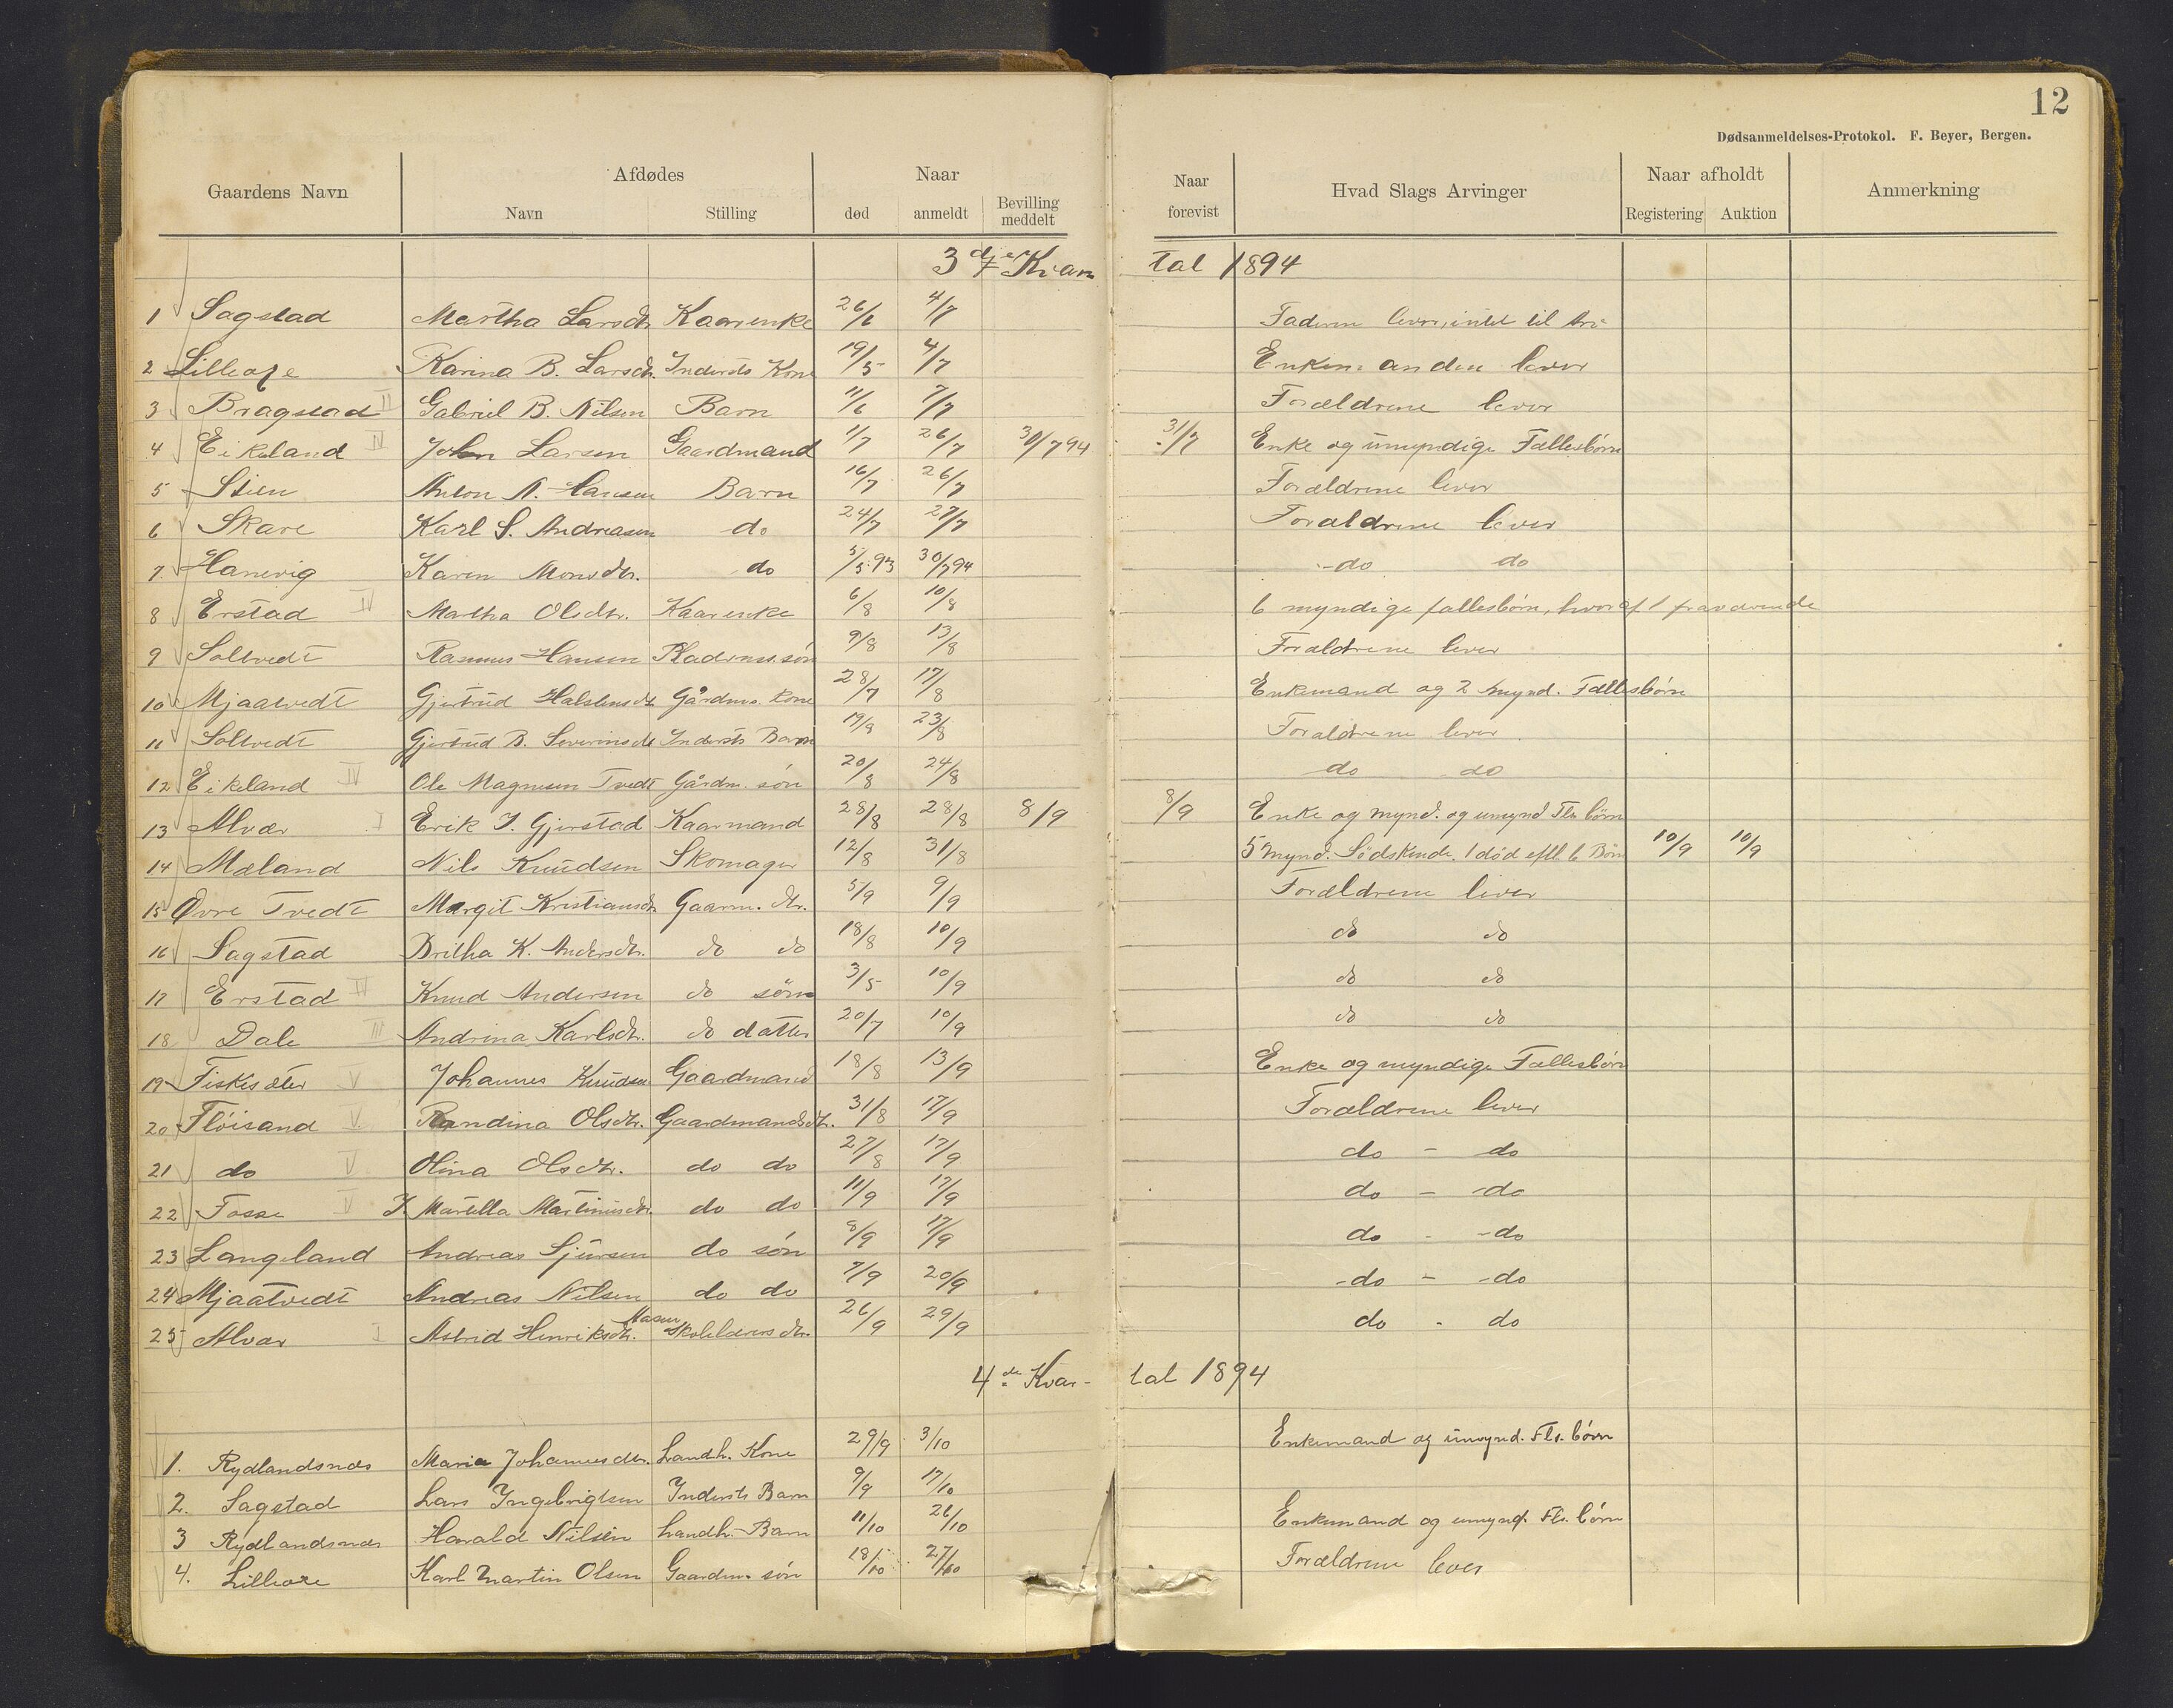 12
Dødsanmeldelses-Protokol. F. Beyer, Bergen.
Gaardens Navn Afdødes Naar Naar Hvad Slags Arvinger Naar afholdt Anmerkning
Navn Stilling død anmeldt Bevilling meddelt forevist Registering Auktion
3dje Kvartal 1894
1 Sagstad Martha Larsdtr. Kaarenke 26/6 4/7 lever, intet til
2 Lilleore Karina B. Larsdtr. Indersts Kone 19/5 4/7 lever
3 Bragstad II Gabriel B. Nilsen Barn 11/6 7/7 Forældrene lever
4 Eikeland IV John Larsen Gaardmand 1/7 26/7 30/7 94 31/7 Enke og umyndige Fællesbørn
5 Stien Anton N. Hansen Barn 16/7 26/7 Forældrene lever
6 Skare Karl S. Andreasen do 24/7 27/7 Forældrene lever
7. Hanevig Karen Monsdtr. do 5/5 93 30/7 94 do do
8 Erstad IV Martha Olsdtr. Kaarenke 6/8 10/8 6 myndige fællesbørn, hvoraf 1 fraværende
9 Soltvedt Rasmus Hansen Pladsmss. søn 9/8 13/8 Forældrene lever
10 Mjaatvedt Gjertrud Halstensdtr. Gårdms. kone 28/7 17/8 Enkemand og 2 mynd. Fællesbørn
11 Soltvedt Gjertrud B. Severinsdtr Indersts Barn 19/8 23/8 Forældrene lever
12 Eikeland IV Ole Magnesen Tvedt Gårdm. søn 20/8 24/8 do do
13 Alvær I Erik J. Gjerstad Kaarmand 28/8 28/8 8/9 8/9 Enke og mynd. og umynd Fls børn
14 Mæland Nils Knudsen Skomager 12/8 31/8 5 mynd. Sødskende. 1 død eftl 6 Børn 10/9 10/9
15 Øvre Tvedt Margit Kristiansdtr Gaarm. dtr. 5/9 9/9 Forældrene lever
16 Sagstad Britha K. Andersdtr. do do 18/8 10/9 do do
17 Erstad IV Knud Andersen do søn 3/5 10/9 do do
18 Dale III Andrina Karlsdtr. do datter 20/7 10/9 do do
19 Fiskesæter V Johannes Knudsen Gaardmand 18/8 13/9 Enke og myndige Fællesbørn
20 Fløisand V Randina Olsdtr. Gaardmandsdtr. 31/8 17/9 Forældrene lever
21 do V Olina Olsdtr. do do 27/8 17/9 do - do
22 Fosse V J. Martella Martinusdtr. do do 11/9 17/9 do - do
23 Langeland Andreas Sjursen do søn 8/9 17/9 do - do
24 Mjaatvedt Andreas Nilsen do do 7/9 20/9 do - do
25 Alvær I Astrid Henriksdtr. Skolelærers dtr. 26/9 29/9 do - do
4de Kvartal 1894
1. Rydlandsnæs Maria Johannesdtr. Landh. Kone 29/9 3/10 Enkemand og umynd. Fls. børn
2. Sagstad Lars Ingebrigtsen Indersts Barn 9/9 17/10
3 Rydlandsnæs Harald Nilsen Landh. Barn 11/10 26/10 Enkemand og umynd. Fls. børn
4. Lilleore Karl Martin Olsen Gaardm. søn 18/10 27/10 Forældrene lever